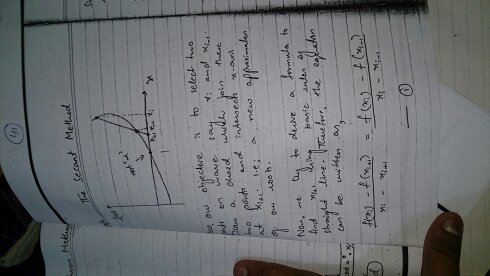 The Secant Method
f(x)
root
x
our objective is to select two
on curve say xi and xi-1.
Draw a chord which join these
two points and intersects x axis
at xi+1. i.e; a new approximation
of our root.
Now, we try to derive a formula to
find xi+1. Using basic rules of
straight line. Therefore, the equation
can be written as,
f(xi) - f(xi+1) / xi - xi+1 = f(xi) - f(xi-1) / xi - xi-1
— ①